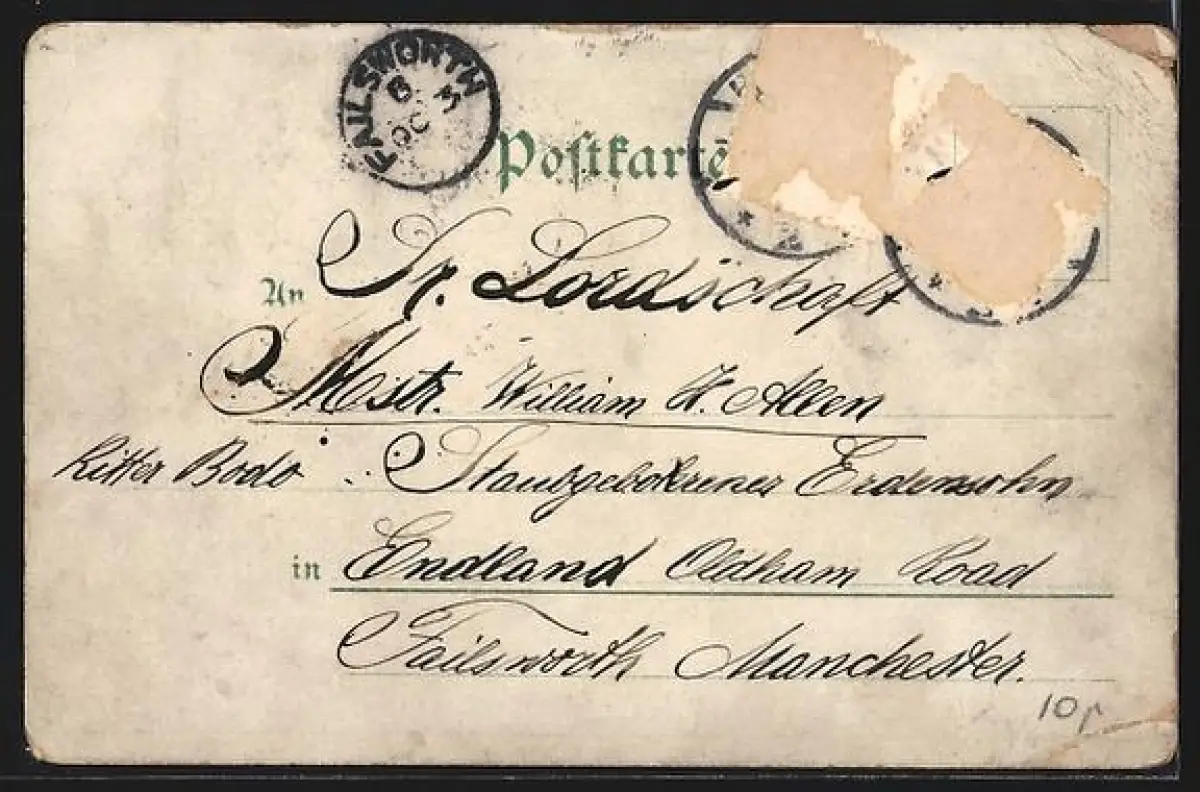 FAILSWORTH
OC 3
Postkarte
An Sr. Lordschaft
Mstr. William H. Allen
Ritter Bodo : Staubgebokrener Erdensohn
in Endland Oldham Road
Failsworth Manchester.
10